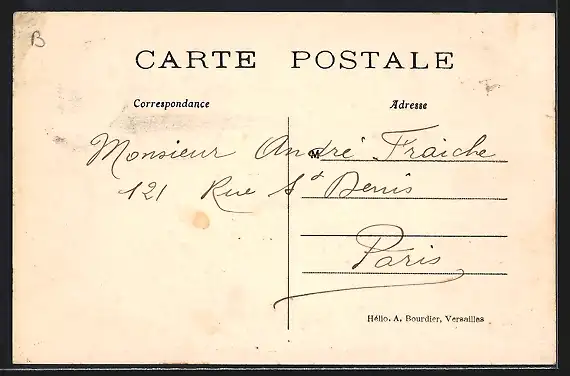 B
CARTE POSTALE
Correspondance Adresse
M
Monsieur André Fraiche
121 Rue St Denis
Paris
Hélio. A. Bourdier, Versailles